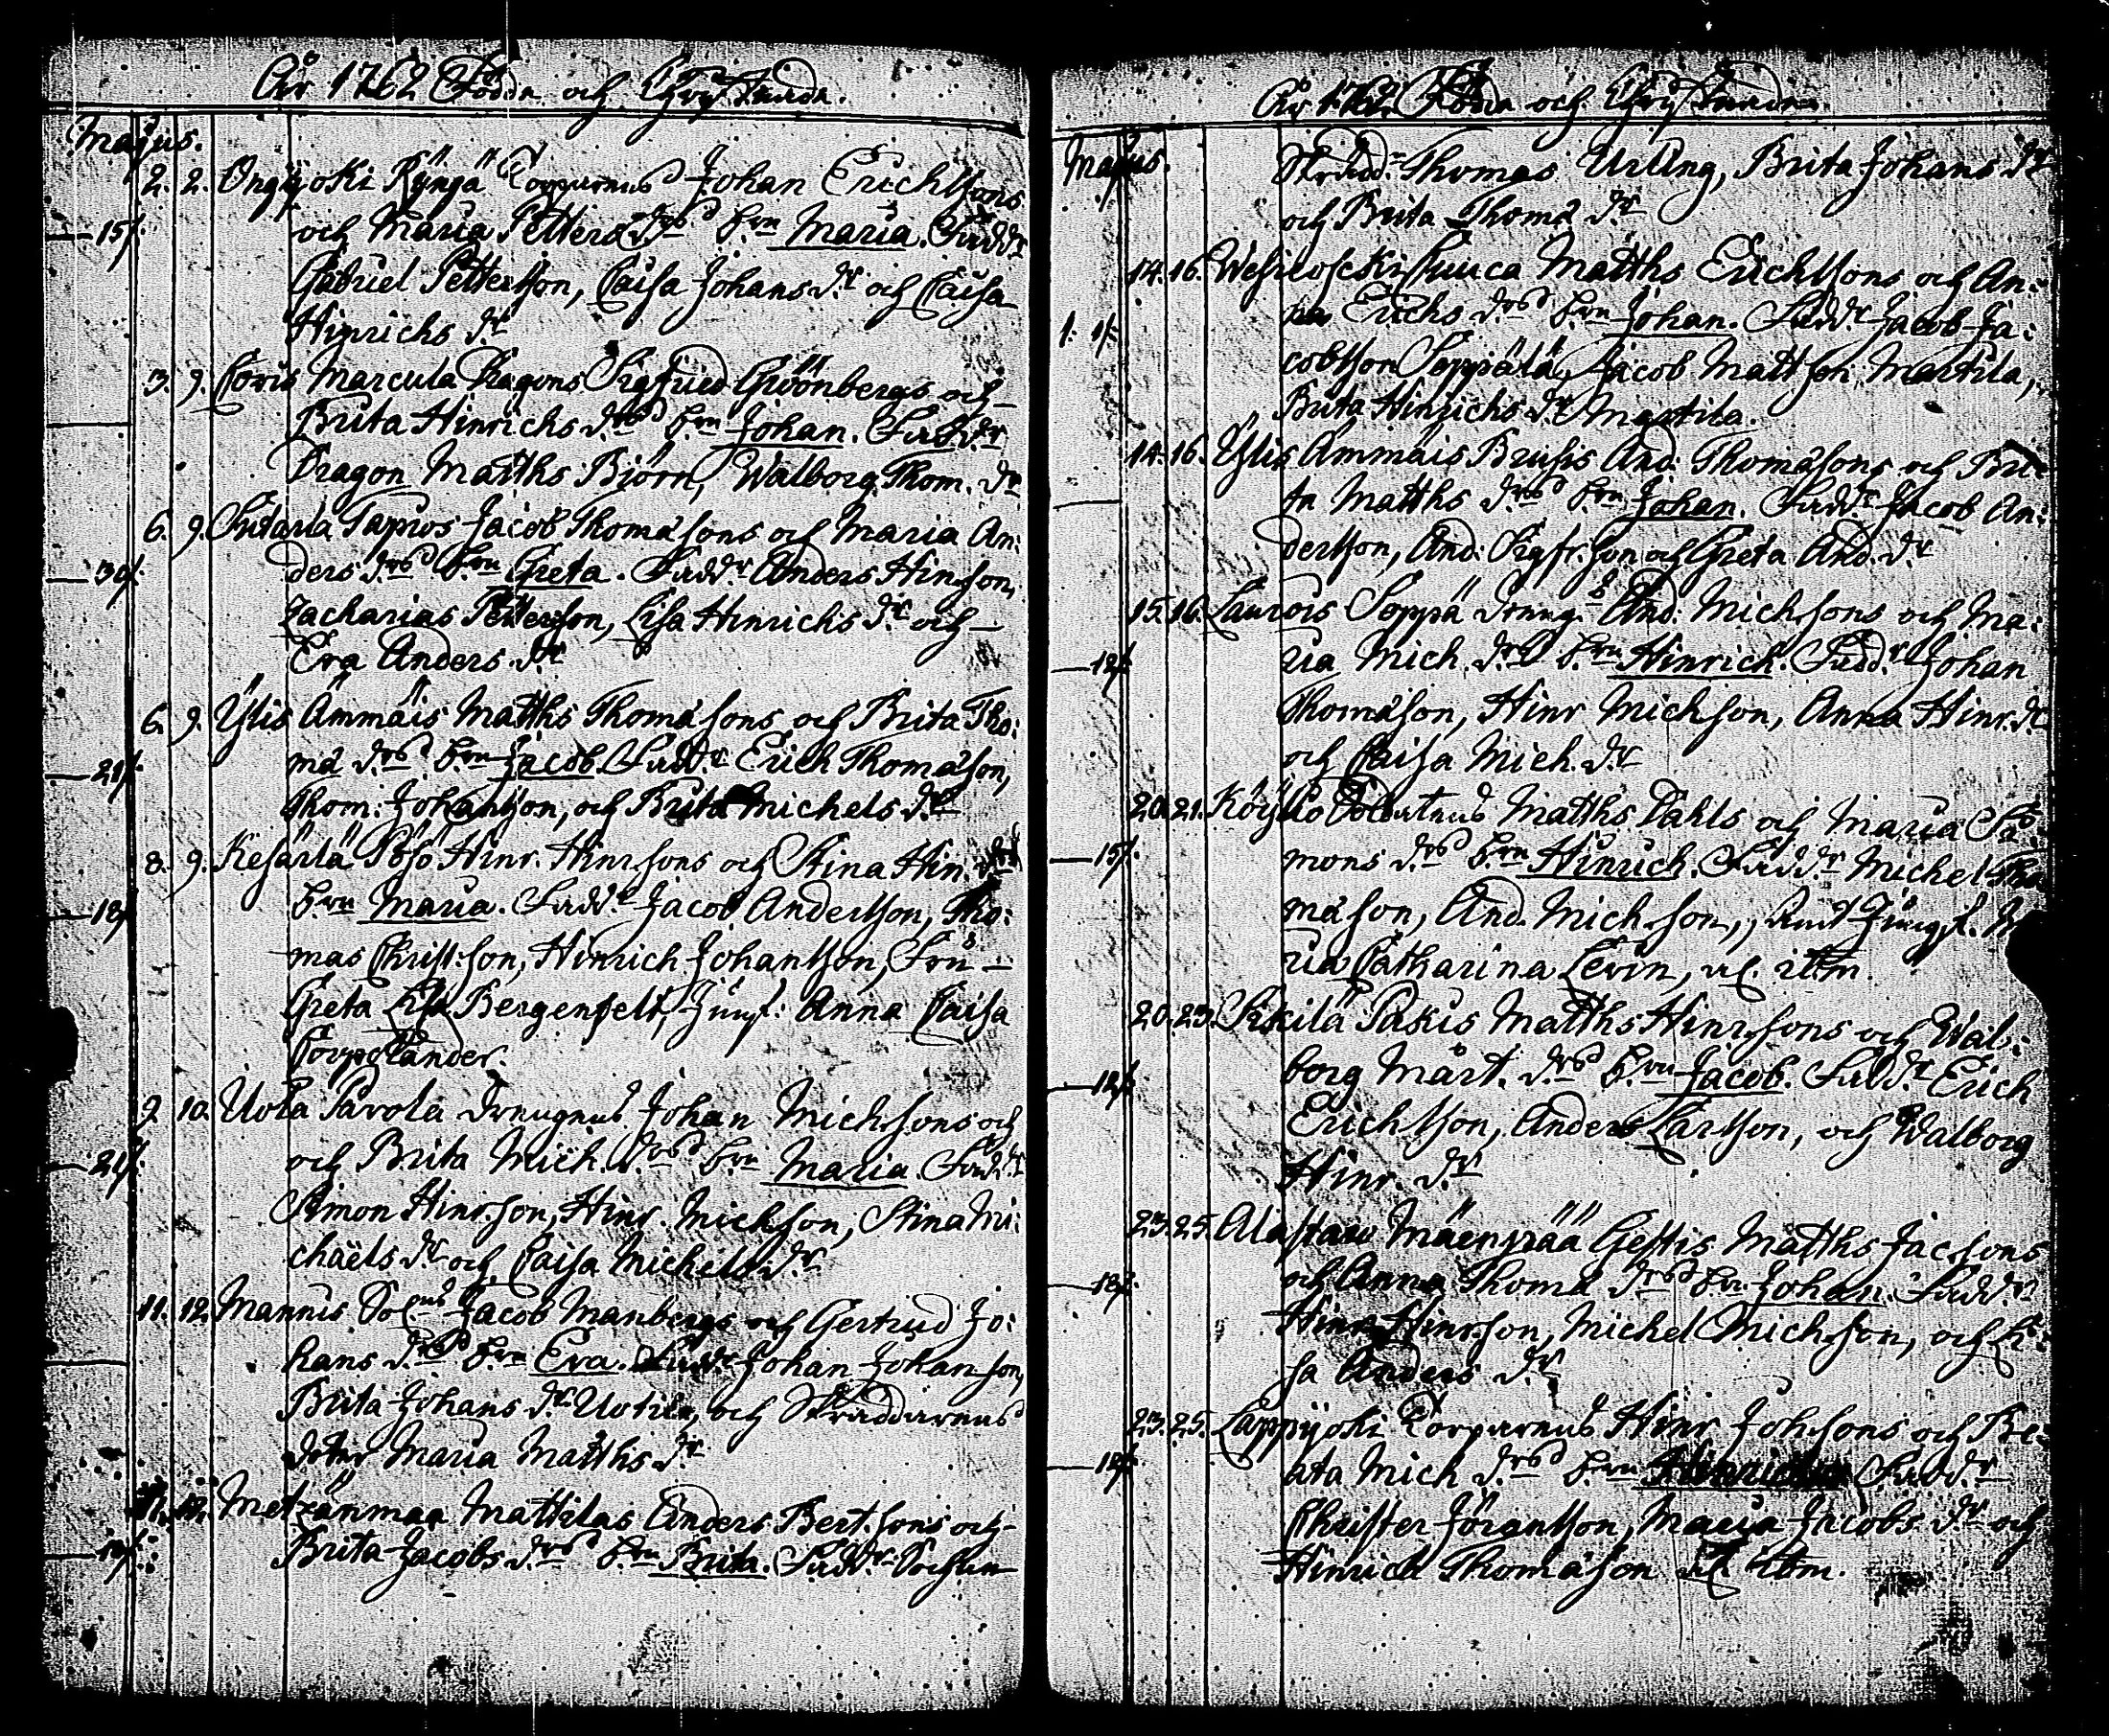 År 1762 Födda och Christnada.
Majus.
2. 2. Ongijoki Rÿngä Torparens Johan Erichssons
15/. och Maria Petters drs b:rn Maria. Fadd:r
Gabriel Pettersson, Caisa Johans d:r och Caisa
Hinrichs d:r
3. 9. Coris Marcula Dragons Sigfried Grönbergs och
Brita Hinrichs drs b:rn Johan. Fadd:r
Dragon Matths Björn, Walborg Thom. d:r
6. 9. Jacob Thomæsons och Maria An:
30/. ders drs b:rn Greta. Fadd:r Anders Hinrson,
Zacharias Pettersson, Lisa Hinrichs d:r och
Eva Anders d:r
6. 9. Ylis Ämmäis Matths Thomæsons och Brita Tho:
21/. mæ drs b:rn Jacob. Fadd:r Erich Thomæson,
Thom. Johansson, och Brita Michels d:r
8. 9. Kesärlä Pösö Hinr. Hinrsons och Stina Hin. drs
18/. b:rn Maria. Fadd:r Jacob Andersson, Tho:
mas Christ:son, Hinrich Johansson, Fru
Greta Lisa Bergenfelt, Jungf: Anna Caisa
9. 10. Uola Pavola drängens Johan Michsons och
21/. och Brita Mich. drs b:rn Maria. Fadd:r
Simon Hinrson, Hinr. Michson, Stina Mi:
chaëls d:r och Caisa Michels d:r
11. 12. Mannis Jacob Manbergs och Gertrud Jo:
hans drs b:rn Eva. Fadd:r Johan Johansson,
Brita Johans d:r Uotila, och Skräddarens
doter Maria Matths d:r
11. 12. Metzänmaa Mattilas Anders Bert:sons och
Brita Jacobs drs b:rn Brita. Fadd:r
År 1762. Födda och Christnada.
Majus. Skrädd: Thomas Urling, Brita Johans d:r
och Brita Thomæ d:r
14. 16. Matths Erichssons och An:
1. 1/. na Erichs drs b:rn Johan. Fadd:r Jacob Ja:
cobsson Seppälä, Jacob Mattsson Martila,
Brita Hinrichs d:r Martila.
14. 16. Ylis Ammäis Brusis And. Thomæsons och Bri:
ta Matths drs b:rn Johan. Fadd:r Jacob An:
dersson, And: Sigfr.son och Greta And. d:r
15. 16. Laurois Seppä dräng:s And: Michsons och Ma:
12/. ria Mich. drs b:rn Hinrich. Fadd:r Johan
Thomæson, Hinr Michson, Anna Hinr. d:r
och Caisa Mich. d:r
20. 21. Köyliö Matths Dahls och Maria Si
15/. mons drs b:rn Hinrich. Fadd:r Michel Tho
mæson, And. Michson, samt Jungf. Ma
ria Catharina Levin, uc. ittm.
20. 23. Kiskila Paskis Matths Hinrsons och Wal:
12/. borg Märt. drs b:rn Jacob. Fadd:r Erich
Erichsson, Anders Larsson, och Walborg
Hinr. d:r
23. 25. Alastaro Mäenpää Gestis Matths Jacsons
18/. och Anna Thomæ drs b:rn Johan. Fadd:r
Hinr Hinrson, Michel Michson, och Li:
sa Anders d:r
23. 25. Lappijoki Torparens Hinr Johsons och Be:
12/. ata Mich drs b:rn Fadd:r
Christer Jöransson, Maria Jacobs d:r och
Hinrich Thomæson uc. ittm.